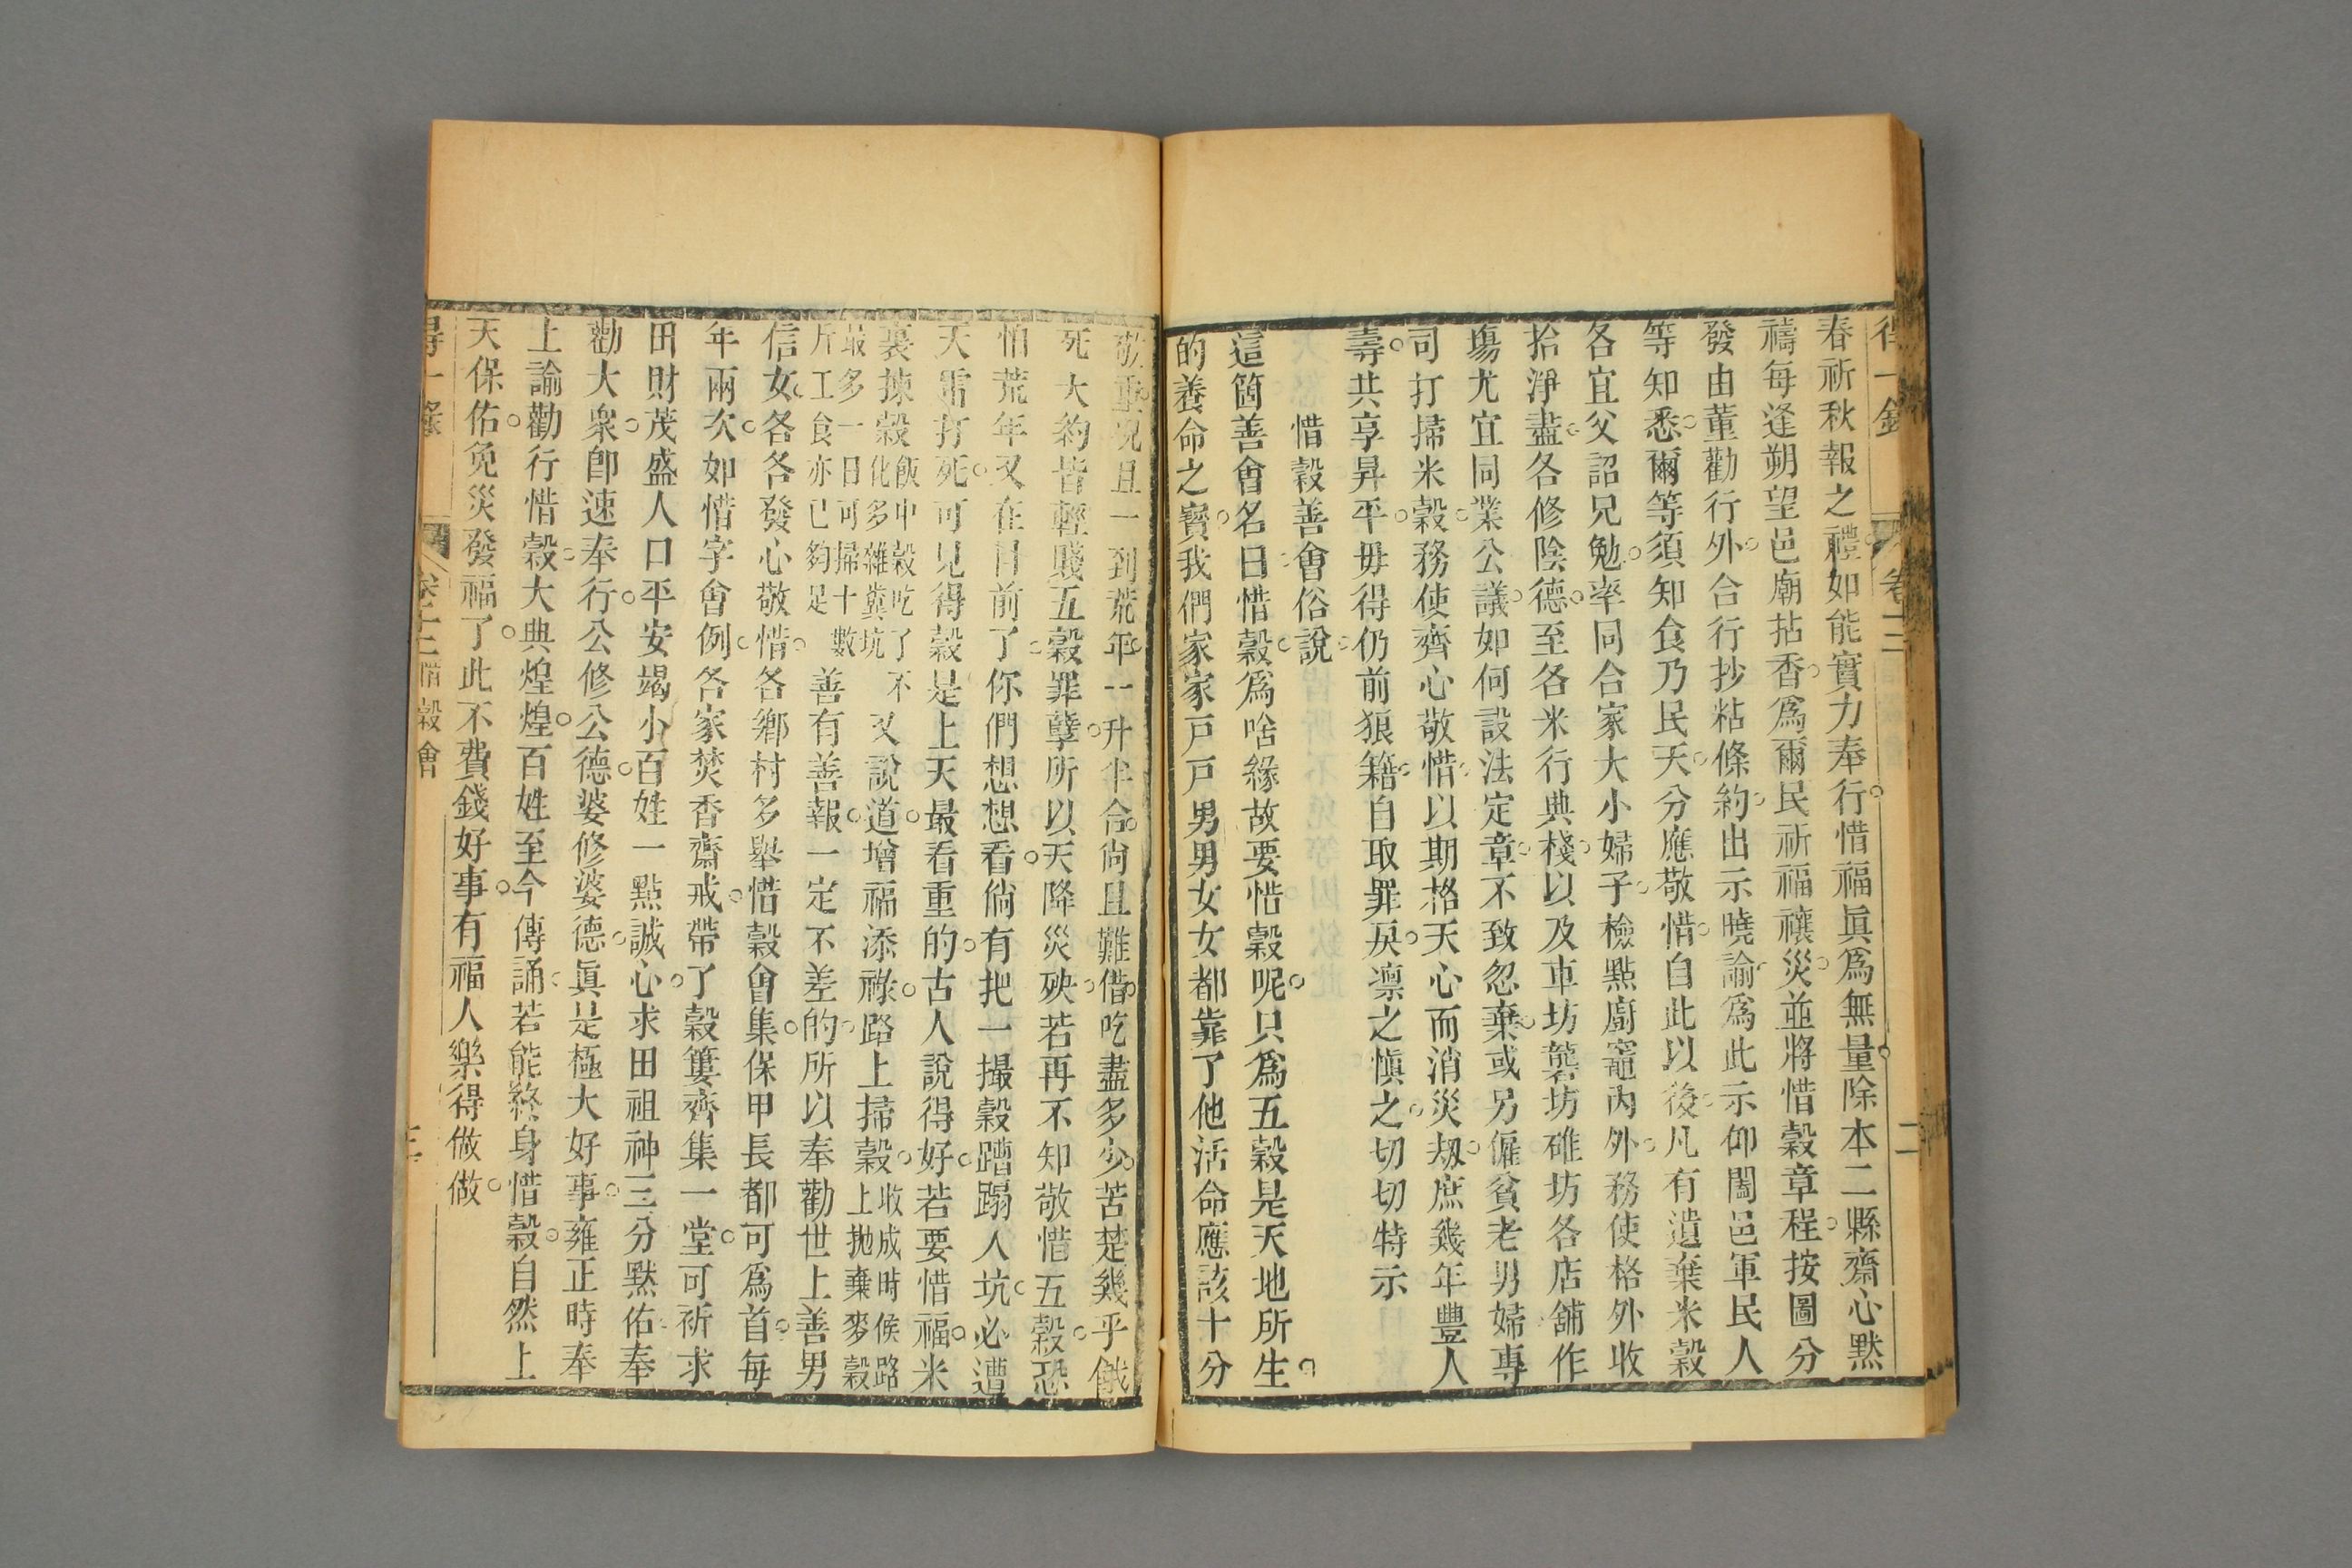 得一錄 卷十二 二
春祈秋報之禮。如能實力奉行。惜福眞爲無量。除本二縣齋心默
禱每逢朔望邑廟拈香。爲爾民祈福禳災。並將惜穀章程。按圖分
發由董勸行外。合行抄粘條約。出示曉諭。爲此示仰闔邑軍民人
等知悉。爾等須知食乃民天。分應敬惜。自此以後。凡有遺棄米穀
各宜父詔兄勉。率同合家大小婦子。檢點廚竈內外。務使格外收
拾淨盡。各修陰德。至各米行典棧。以及車坊礱坊碓坊各店舖作
塲尤宜同業公議。如何設法定章。不致忽棄。或另僱貧老男婦專
司打掃米穀。務使齊心敬惜。以期格天心而消災刼。庶幾年豐人
壽。共享昇平。毋得仍前狼籍。自取罪戾。凛之愼之。切切特示
惜穀善會俗說。
這箇善會名曰惜穀。爲啥緣故要惜穀呢。只爲五穀是天地所生。
的養命之寳。我們家家戸戸男男女女都靠了他活命應該十分
敬重。况且一到荒年。一升半合。尙且難借。吃盡多少。苦楚幾乎餓
死大約皆輕賤五穀罪孽。所以天降災殃。若再不知敬惜五穀。恐
怕荒年又在目前了。你們想想看。倘有把一撮穀蹧蹋人坑。必遭
天雷打死。可見得穀是上天最看重的。古人說得好。若要惜福。米
裏揀穀飯中穀吃了不化多雜糞坑又說道。增福添祿。路上掃穀。收成時候路上拋棄麥穀
最多一日可掃十數斤工食亦已夠足善有善報。一定不差的。所以奉勸世上善男
信女。各各發心敬惜。各鄉村多舉惜穀會集。保甲長都可爲首。每
年兩次。如惜字會例。各家焚香齋戒。帶了穀簍齊集一堂。可祈求
田財茂盛人口平安竭小百姓一點誠心。求田祖神三分黙佑。奉
勸大衆。卽速奉行。公修公德。婆修婆德。眞是極大好事。雍正時奉
上諭勸行惜穀。大典煌煌。百姓至今傳誦。若能終身惜穀。自然上
天保佑。免災發福了。此不費錢好事。有福人樂得做做。
得一錄 卷十二 惜穀會 三